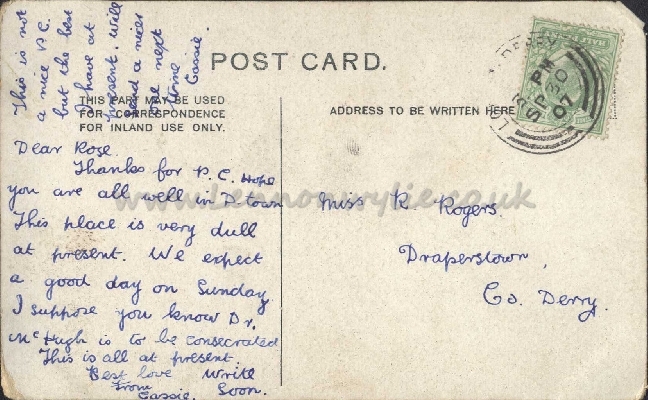 This is not
a nice P.C.
but the best
I have at
present. Will
send a nicer
one next
time
Cassie
POST CARD.
THIS PART MAY BE USED
FOR CORRESPONDENCE
FOR INLAND USE ONLY.
ADDRESS TO BE WRITTEN HERE
DERRY
PM
SP 30
07
Dear Rose
Thanks for P.C. Hope
you are all well in D.town
This place is very dull
at present. We expect
a good day on Sunday
I suppose you know Dr.
McHugh is to be consecrated
This is all at present.
Best love Write
From Soon.
Cassie.
Miss R Rogers.
Draperstown,
Co. Derry.
www.Lennonwylie.co.uk